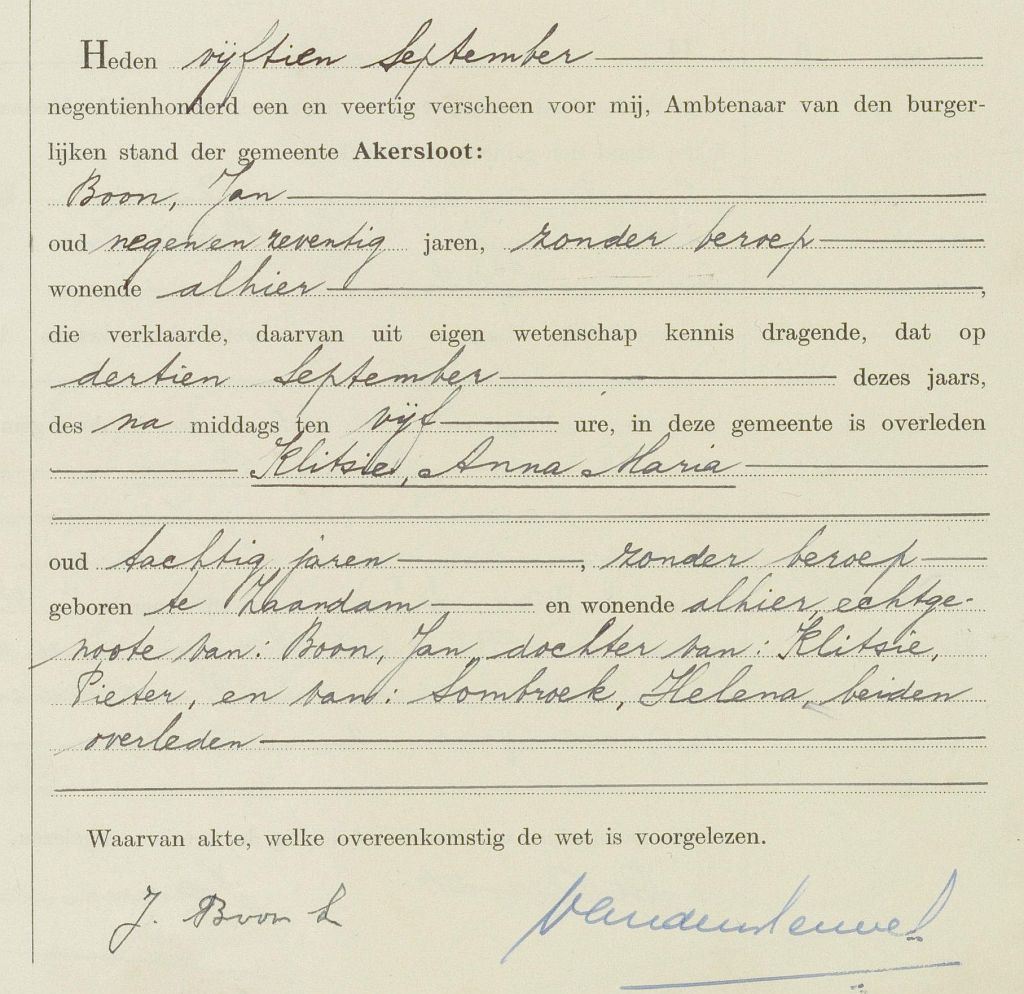 Heden vijftien September
negentienhonderd een en veertig verscheen voor mij, Ambtenaar van den burger-
lijken stand der gemeente Akersloot:
Boon, Jan
oud negen en zeventig jaren, zonder beroep
wonende alhier,
die verklaarde, daarvan uit eigen wetenschap kennis dragende, dat op
dertien September dezes jaars,
des na middags ten vijf ure, in deze gemeente is overleden
Klitsie, Anna Maria
oud tachtig jaren, zonder beroep
geboren te Zaandam en wonende alhier, echtge-
noote van: Boon, Jan, dochter van: Klitsie,
Pieter, en van: Sombroek, Helena, beiden
overleden
Waarvan akte, welke overeenkomstig de wet is voorgelezen.
J. Boon